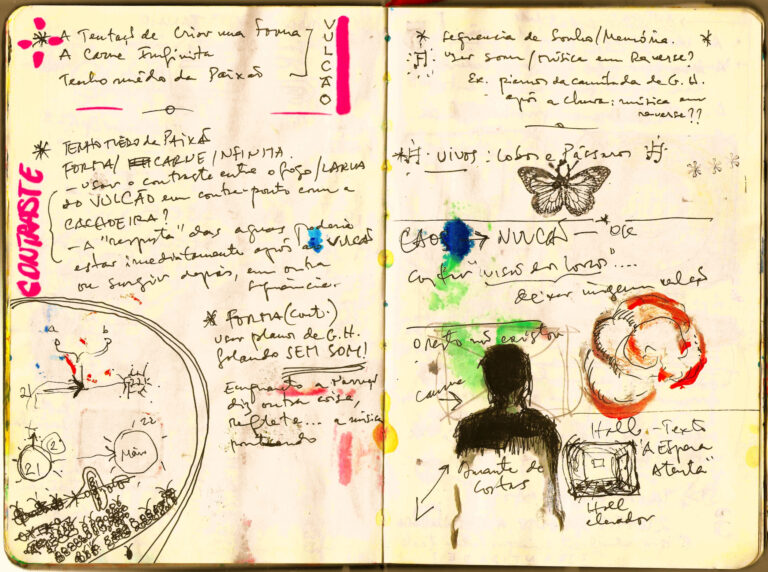 * A Tentação de Criar uma Forma
A Carne Infinita
Tenho medo da Paixão
VULCÃO
CONTRASTE
* TENHO MEDO da PAIXÃO
FORMA/ CARNE /INFINITA
- usar o contraste entre o fogo/LARVA
do VULCÃO em contra-ponto com a
CACHOEIRA?
- A "resposta" das aguas poderia
estar imediatamente após ao VULCÃO
ou surgir depois, em outra
sequência.
* FORMA (cont.)
usar planos de G.H.
falando SEM SOM!
Enquanto a
diz outra coisa,
reflete... a música
pontuando
a b
21
2
21
Mão
* Sequencia de Sonho/Memória. *
usar som/música em Reverse?
Ex. planos da caminhada de G.H.
após a chuva: música em
reverse??
UIVOS: Lobos e Pássaros
CÃO → VULCÃO
"uivos dos lobos"....
deixar
O resto não existe
Amante de
costas
Hall - Texto
"A Espera
Atenta"
Hall
elevador